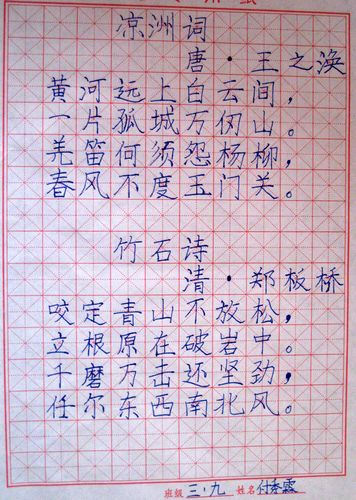 凉洲词
唐·王之涣
黄河远上白云间,
一片孤城万仞山。
羌笛何须怨杨柳,
春风不度玉门关。
竹石诗
清·郑板桥
咬定青山不放松,
立根原在破岩中。
千磨万击还坚劲,
任尔东西南北风。
班级 三·九 姓名 付秀霖